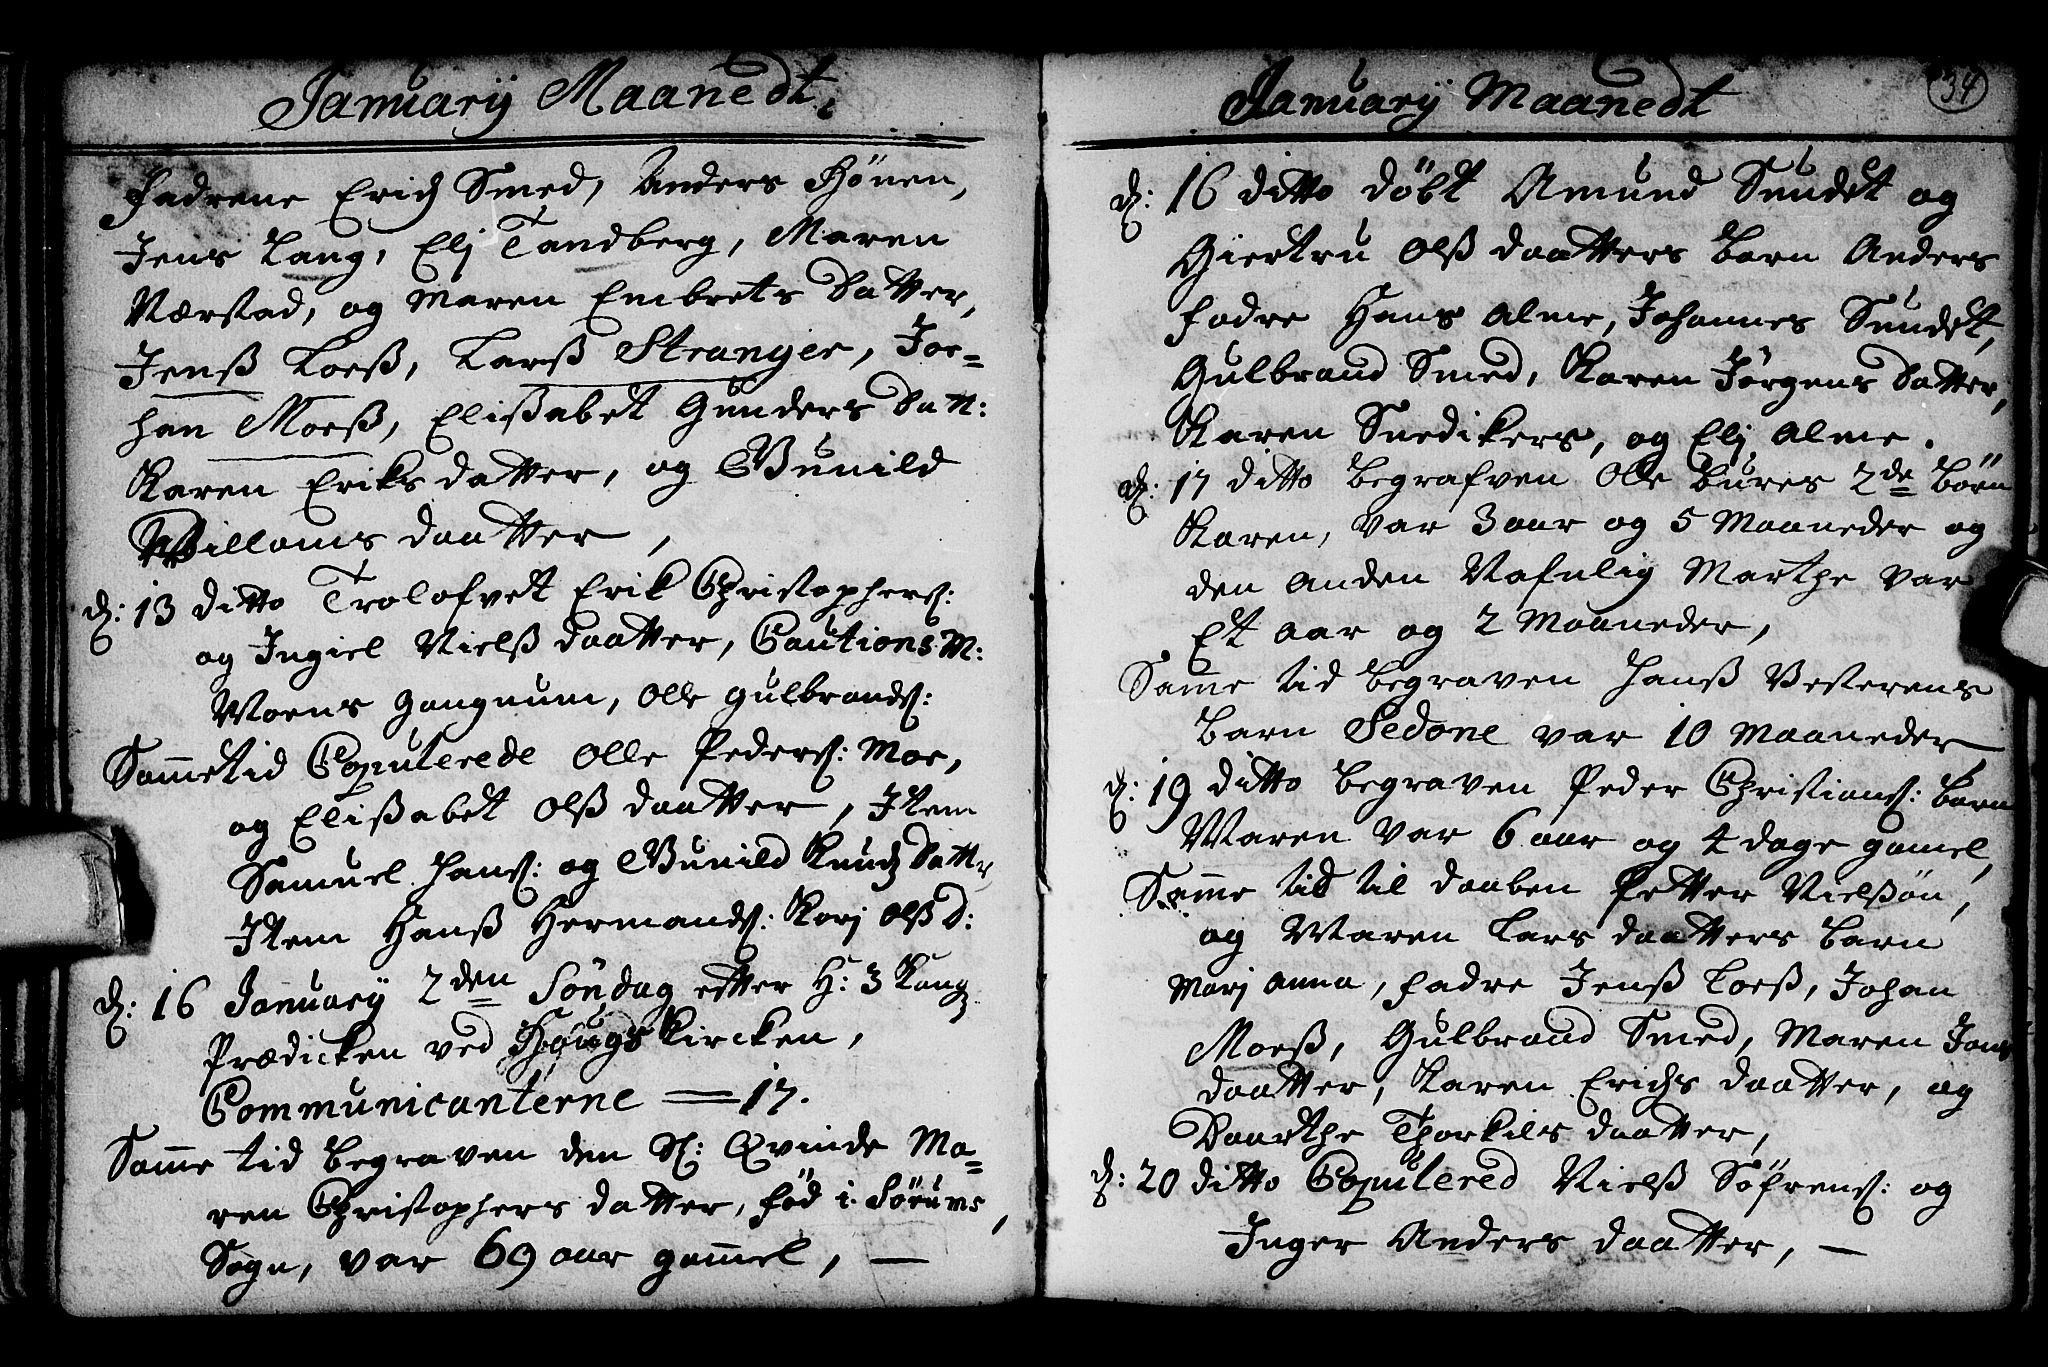 Januarij Maanedt,
Fadrene Erich Smed, Anders Hönen,
Jens Lang, Elj Tandberg, Maren
Værstad, og Maren Embrets Datter,
Jenß Loeß, Larß Stranger, Jo-
han Moeß, Elisabet Gunders Datt:
Karen Eriks datter, og Gunild
Willoms daatter,
d: 13 ditto Trolofvet Erik Christophers:
og Ingiel Nielß daatter, Cautions M:
Moens Gangnum, Olle Gulbrands:
Samme tid Copulerede Olle Peders: Moe,
og Elisabet Olß daatter, Item
Samuel Hans: og Gunild Knudz Dattr
Item Hanß Hermands: Karj Olß D:
d: 16 Januarij 2den Söndag efter H: 3 Kong
Prædicken ved Hougs Kircken,
Communicanterne = 17.
Samme tid begraven den Sl: Qvinde Ma-
ren Christophers datter, föd i Sörums,
Sogn, var 69 aar gammel, —
Januarij Maanedt
34
d: 16 ditto döbt Amund Sundet og
Giertru Olß daatters barn Anders
fadre Hans Alme, Johannes Sundet,
Gulbrand Smed, Karen Jörgens Datter,
Karen Snedikers, og Elj Alme.
d: 17 ditto begrafven Olle Bures 2de börn
Karen, var 3 aar og 5 Maaneder og
den anden Nafnlig Marthe var
Et aar og 2 Maaneder,
Samme tid begraven Hanß Vesterens
barn Sedone var 10 Maaneder
d: 19 ditto begraven Peder Christians: barn
Maren var 6 aar og 4 dage gamel,
Samme tid til daaben Petter Nielßön,
og Maren Lars daatters barn
Marj Anna, fadre Jenß Loeß, Johan
Moeß, Gulbrand Smed, Maren Jons
daatter, Karen Erichs daatter, og
Baarthe Thorkils daatter,
d: 20 ditto Copulered Nielß Söfrens: og
Inger Anders daatter, —